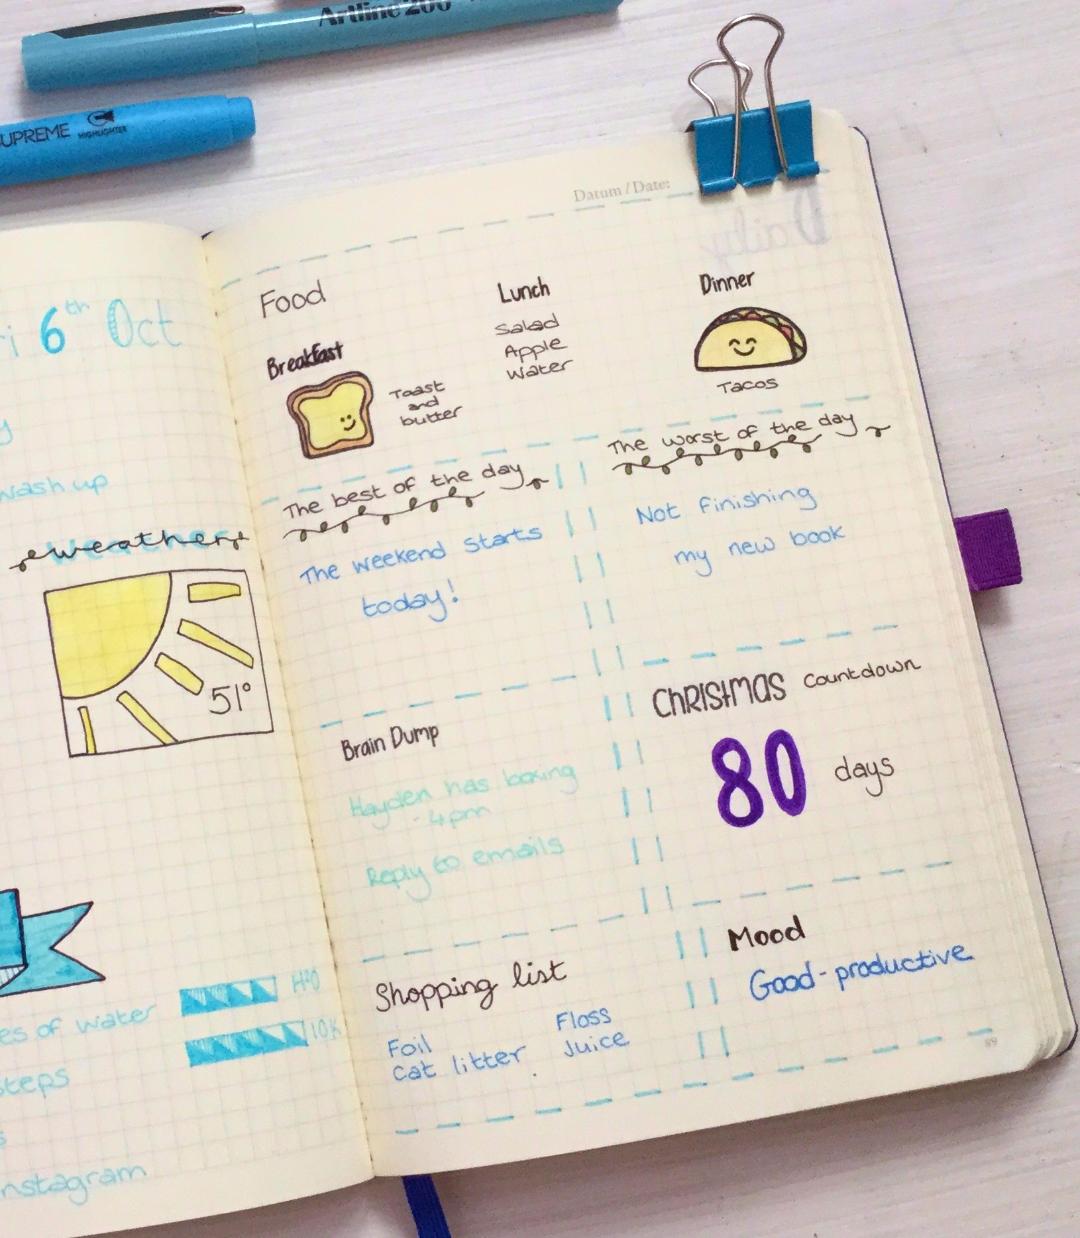 Artline 200
SUPREME
HIGHLIGHTER
6th Oct
wash up
weather
51°
es of water
H2O
steps
10K
nstagram
Datum / Date:
Daily
Food
Breakfast
Toast
and
butter
Lunch
Salad
Apple
Water
Dinner
Tacos
The best of the day
The weekend starts
today!
The worst of the day
Not finishing
my new book
Brain Dump
Hayden has boxing
- 4pm
Reply to emails
Christmas Countdown
80 days
Shopping list
Foil
Cat litter
Floss
Juice
Mood
Good - productive
89